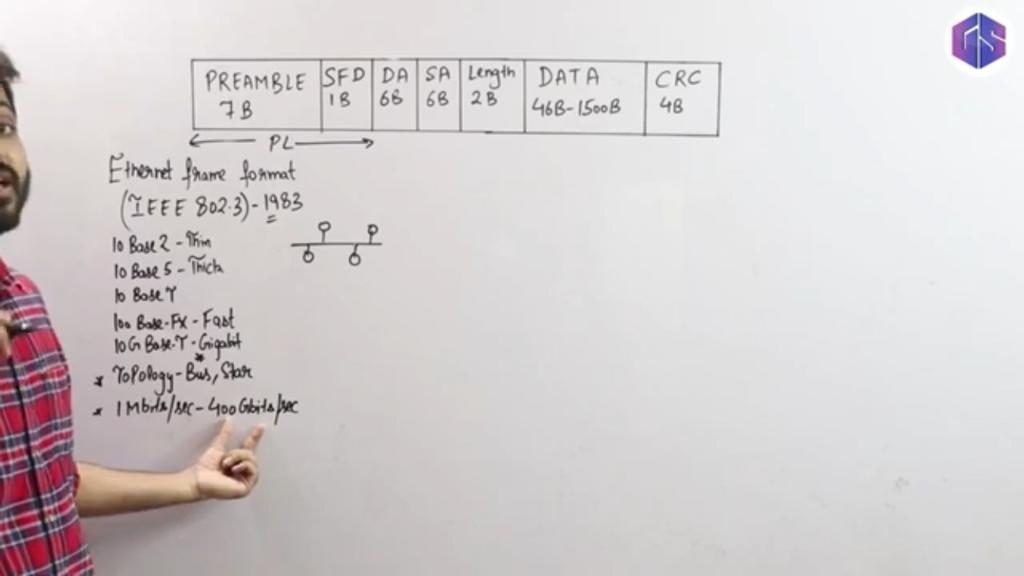 PREAMBLE SFD DA SA Length DATA CRC
7B 1B 6B 6B 2B 46B-1500B 4B
PL
Ethernet frame format
(IEEE 802.3)-1983
10 Base 2 - Thin
10 Base 5 - Thick
10 Base T
100 Base-Fx - Fast
10G Base-T - Gigabit
* Topology - Bus, Star
* 1 Mbits/sec - 400 Gbits/sec
GS